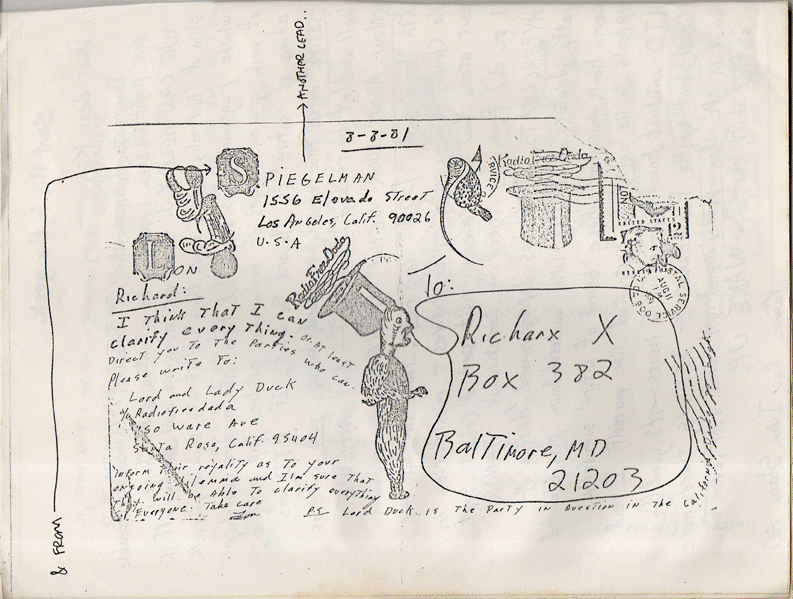 ANOTHER LEAD..
8-8-81
SPIEGELMAN
1556 Elevado Street
Los Angeles, Calif. 90026
U.S.A
LON
Radio Free Dada
Radio Free Dada
UNITED STATES
POSTAL SERVICE
AUG 11
To:
Richarx X
Box 382
Baltimore, MD
21203
Richard:
I Think That I can
clarify every Thing. Or AT least
Direct you To The Parties who can.
Please write To:
Lord and Lady Duck
c/o Radiofreedada
Ware Ave
Santa Rosa, Calif. 95404
Inform Their royality as To your
ongoing dilemma and I'm sure That
They will be Able To clarify everything
Everyone. Take care
Lon
P.S. Lord Duck is The Party in Question in The California
& FROM